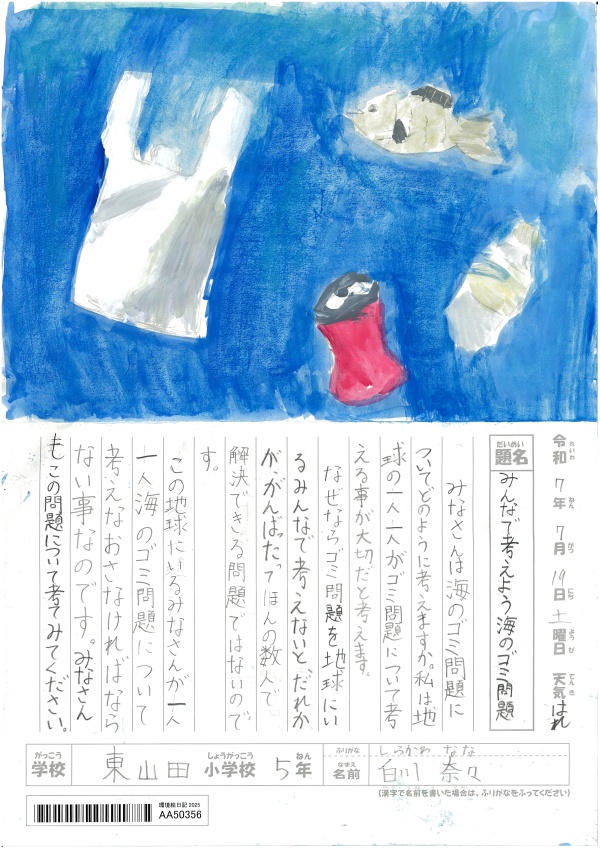 令和7年7月19日土曜日 天気はれ
れいわ ねん がつ にち ようび てんき
だいめい
題名
みんなで考えよう海のゴミ問題
みなさんは海のゴミ問題に
ついてどのように考えますか。私は地
球の一人一人がゴミ問題について考
える事が大切だと考えます。
なぜならゴミ問題を地球にい
るみんなで考えないと、だれか
が、がんばったってほんの数人で
解決できる問題ではないので
す。
この地球にいるみなさんが一人
一人海のゴミ問題について
考えなおさなければなら
ない事なのです。みなさん
もこの問題について考てみてください。
がっこう しょうがっこう ねん
学校 東山田小学校 5年
ふりがな しらかわ なな
なまえ
名前 白川 奈々
(漢字で名前を書いた場合は、ふりがなをふってください)
環境絵日記 2025
AA50356